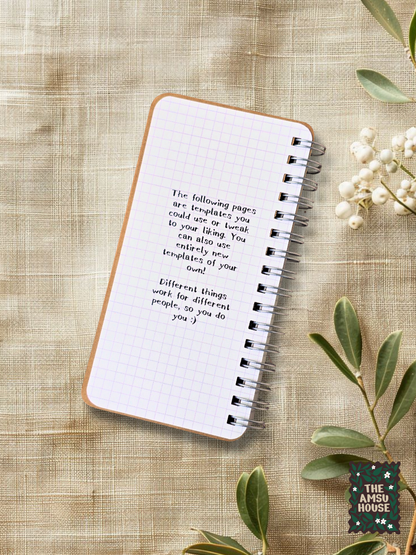 The following pages
are templates you
could use or tweak
to your liking. You
can also use
entirely new
templates of your
own!
Different things
work for different
people, so you do
you :)
THE
AMSU
HOUSE